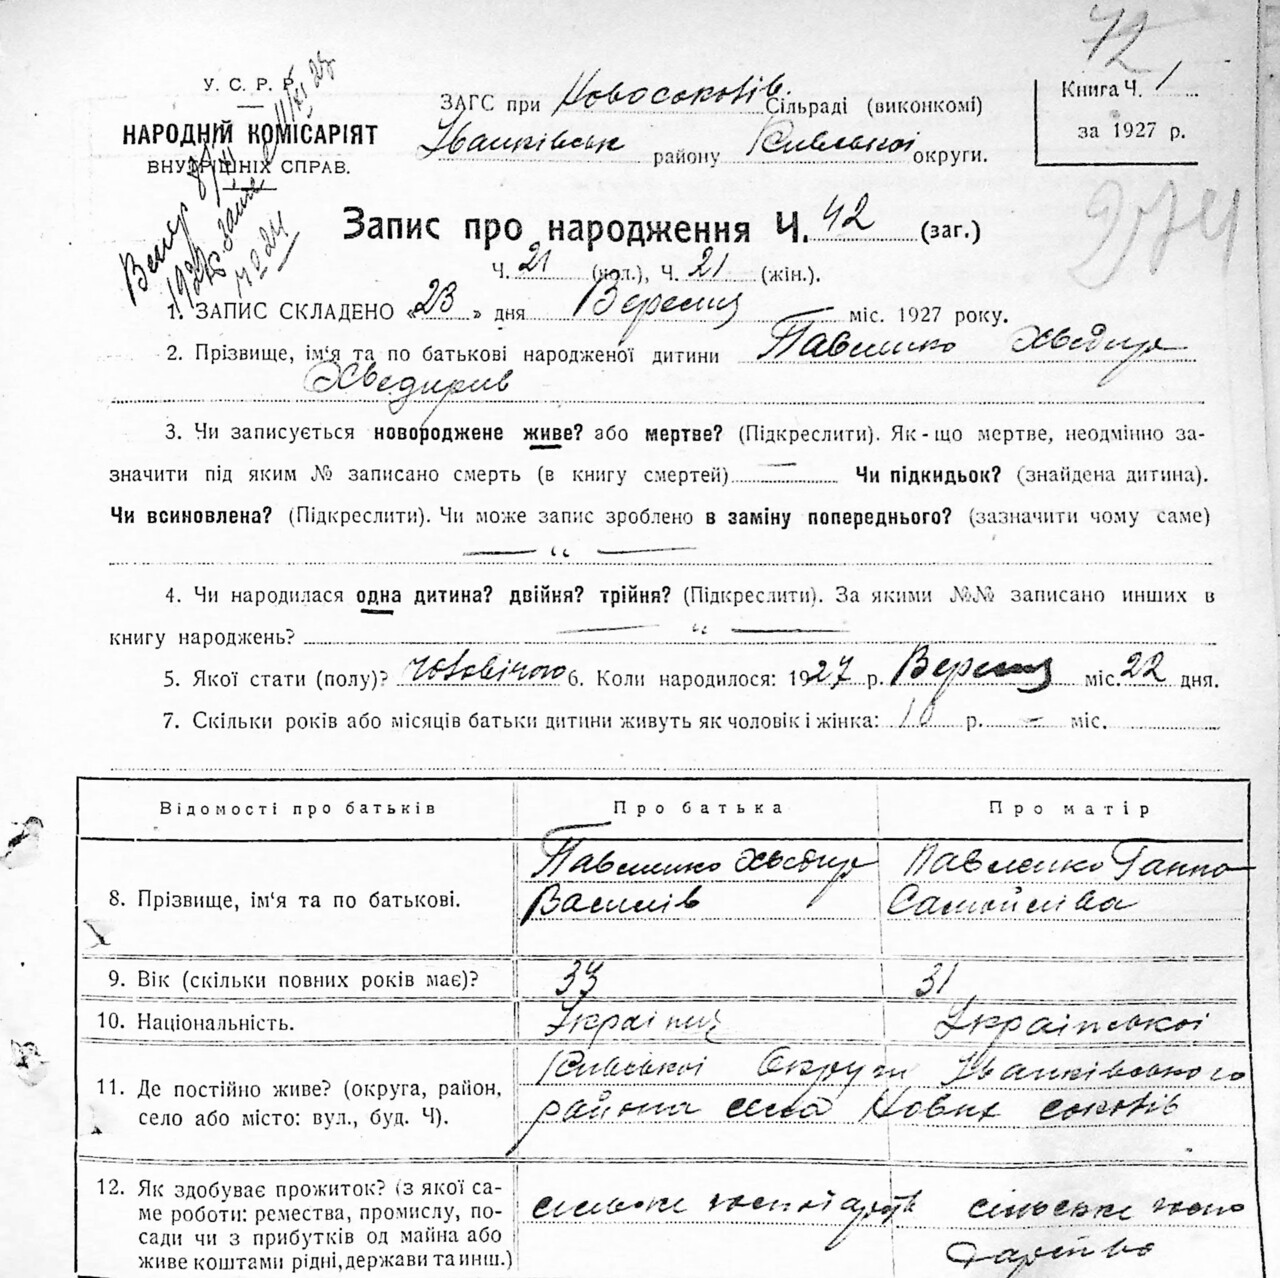 72
У. С. Р. Р.
НАРОДНІЙ КОМІСАРІЯТ
ВНУТРІШНІХ СПРАВ.
ЗАГС при Новосоколів. Сільраді (виконкомі)
Іванківськ району Київської округи.
Книга Ч. 1
за 1927 р.
274
Запис про народження Ч. 42 (заг.)
Ч. 21 (чол.), Ч. 21 (жін.).
1. ЗАПИС СКЛАДЕНО «23» дня Вересня міс. 1927 року.
2. Прізвище, ім'я та по батькові народженої дитини Павленко Хведир
Хведирів
3. Чи записується новороджене живе? або мертве? (Підкреслити). Як-що мертве, неодмінно за-
значити під яким № записано смерть (в книгу смертей) — Чи підкидьок? (знайдена дитина).
Чи всиновлена? (Підкреслити). Чи може запис зроблено в заміну попереднього? (зазначити чому саме)
— „ —
4. Чи народилася одна дитина? двійня? трійня? (Підкреслити). За якими №№ записано инших в
книгу народжень? — „ —
5. Якої стати (полу)? чоловічого 6. Коли народилося: 1927 р. Вересня міс. 22 дня.
7. Скільки років або місяців батьки дитини живуть як чоловік і жінка: 10 р. – міс.
Відомості про батьків Про батька Про матір
8. Прізвище, ім'я та по батькові. Павленко Хведир Павленко Ганна
Василів Самойлівна
9. Вік (скільки повних років має)? 33 31
10. Національність. Українц Української
11. Де постійно живе? (округа, район, Київської Округи Іванківського
село або місто: вул., буд. Ч). района села Нових соколів
12. Як здобуває прожиток? (з якої са-
ме роботи: ремества, промислу, по- сільске господарств сільське госпо
сади чи з прибутків од майна або дарство
живе коштами рідні, держави та инш.)